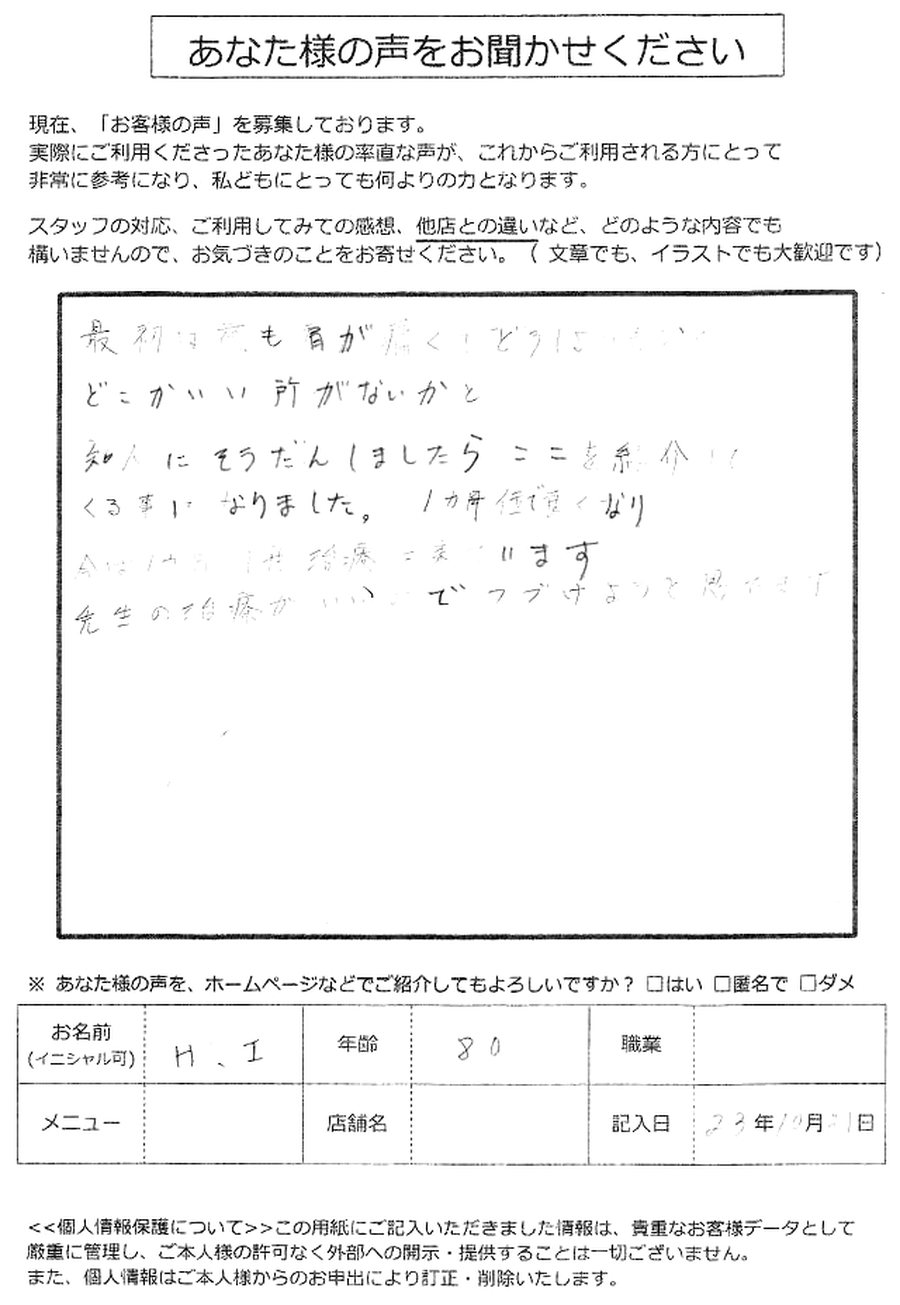 あなた様の声をお聞かせください
現在、「お客様の声」を募集しております。
実際にご利用くださったあなた様の率直な声が、これからご利用される方にとって
非常に参考になり、私どもにとっても何よりの力となります。
スタッフの対応、ご利用してみての感想、他店との違いなど、どのような内容でも
構いませんので、お気づきのことをお寄せください。（ 文章でも、イラストでも大歓迎です）
最初は も肩が痛くて どうし
どこかいい所がないかと
知人にそうだんしましたら ここを紹介して
くる事になりました。 1カ月位で良くなり
今は 治療に来ています
先生の治療がいいので つづけようと思います
※ あなた様の声を、ホームページなどでご紹介してもよろしいですか？ □はい □匿名で □ダメ
お名前 H.I 年齢 80 職業
(イニシャル可)
メニュー 店舗名 記入日 23年10月21日
<<個人情報保護について>>この用紙にご記入いただきました情報は、貴重なお客様データとして
厳重に管理し、ご本人様の許可なく外部への開示・提供することは一切ございません。
また、個人情報はご本人様からのお申出により訂正・削除いたします。